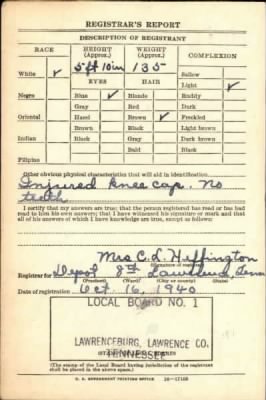 REGISTRAR'S REPORT
DESCRIPTION OF REGISTRANT
RACE HEIGHT (Approx.) WEIGHT (Approx.) COMPLEXION
White ✓ 5 ft 10 in 135 Sallow
EYES HAIR Light ✓
Negro Blue ✓ Blonde Ruddy
Gray Red Dark
Oriental Hazel Brown ✓ Freckled
Brown Black Light brown
Indian Black Gray Dark brown
Bald Black
Filipino
Other obvious physical characteristics that will aid in identification
Injured knee cap. No
teeth
I certify that my answers are true; that the person registered has read or has had
read to him his own answers; that I have witnessed his signature or mark and that
all of his answers of which I have knowledge are true, except as follows:
Mrs C. L. Heffington
(Signature of registrar)
Registrar for Depot 8th Lawrence, Tenn
(Precinct) (Ward) (City or county) (State)
Date of registration Oct. 16, 1940
LOCAL BOARD NO. 1
LAWRENCEBURG, LAWRENCE CO.
TENNESSEE
(The stamp of the Local Board having jurisdiction of the registrant
shall be placed in the above space.)
U. S. GOVERNMENT PRINTING OFFICE